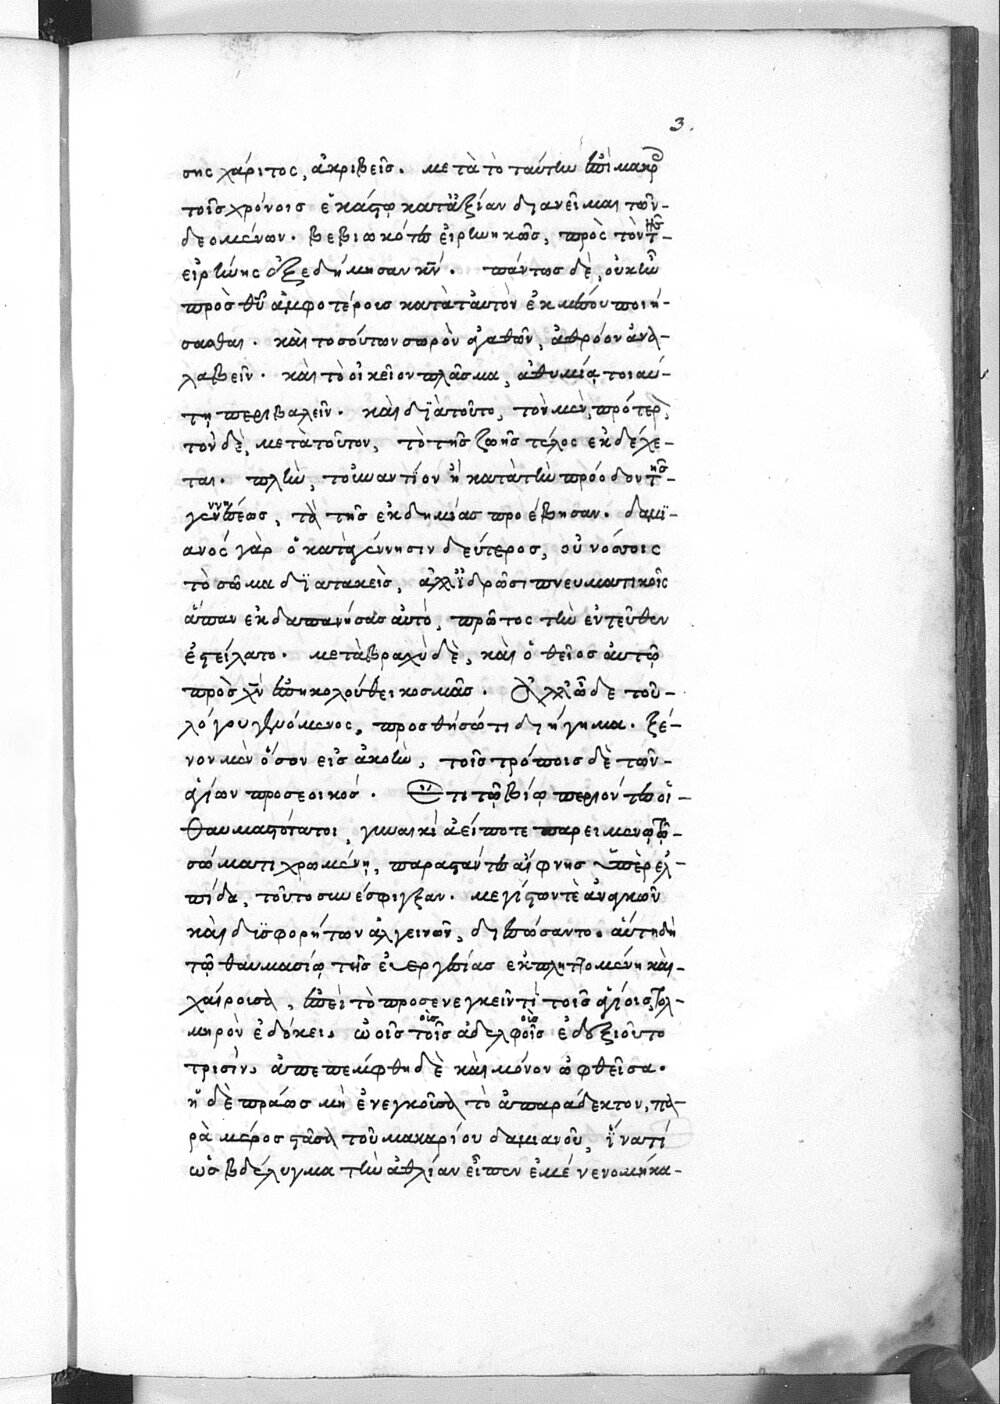 3.
σης χάριτος, ἀκριβεῖς. μετὰ τὸ ταύτην ἐπὶ μακρ
τοῖς χρόνοις ἑκάστω κατἀξίαν διανεῖμαι τῶν
δεομένων. βεβιωκότες εἰρηνικῶς, πρὸς τὸν τῆς
εἰρήνης ἐξεδήμησαν κν. πάντως δὲ, οὐκ ἦν
πρὸς θῦ ἀμφοτέροις κατὰ ταυτὸν ἐκ μέσου ποιή-
σασθαι. καὶ τοσούτων σωρὸν ἀγαθῶν, ἀθρόον ἀνα
λαβεῖν. καὶ τὸ οἰκεῖον πλάσμα, ἀθυμία τοιαύ-
τη περιβαλεῖν. καὶ διὰ τοῦτο, τὸν μὲν πρότερ,
τὸν δὲ, μετὰ τοῦτον, τὸ τῆς ζωῆς τέλος ἐκδέχε-
ται. πλὴν, τοὐναντίον ἢ κατὰ τὴν πρόοδον τῆς
γεννήσεως, τὰ τῆς ἐκδημίας προέβησαν. δαμϊ-
ανὸς γὰρ ὁ κατὰ γέννησιν δεύτερος, οὐ νόσοις
τὸ σῶμα διατακεὶς, ἀλλ' ἱδρῶσι πνευματικοῖς
ἅπαν ἐκδαπανήσας αὐτό, πρῶτος τὴν ἐντεῦθεν
ἐστείλατο. μετὰ βραχὺ δὲ, καὶ ὁ θεῖος αὐτῶ
πρὸς χν ἐπηκολούθει κοσμᾶς. Ἀλλ' ὧδε τοῦ
λόγου γενόμενος, προσθήσω τι διήγημα. ξέ-
νον μὲν ὅσον εἰς ἀκοὴν, τοῖς τρόποις δὲ τῶν
ἁγίων προσεοικός. Ἔτι τῶ βίω περιόντες οἱ
θαυμαστότατοι, γυναικὶ ἀεί ποτε παρειμένω τῶ
σώματι χρωμένη, παραστάντες αἴφνης ὑπὲρ ἐλ
πίδα, τοῦτο συνέσφιγξαν. μεγίστων τὲ ἀναγκῶν
καὶ δυσφορήτων ἀλγεινῶν, διεσώσαντο. αὕτη δὴ
τῶ θαυμασίω τῆς εὐεργεσίας ἐκπληττομένη καὶ
χαίρουσα, ἐπεὶ τὸ προσενεγκεῖν τὶ τοῖς ἁγίοις τολ
μηρὸν ἐδόκει, ὡς οἷς τοῖς ἀδελφοῖς ἐδεξιοῦτο
τρισὶν, ἀπεπέμφθη δὲ καὶ μόνον ὀφθεῖσα.
ἡ δὲ πράως μὴ ἐνεγκοῦσα τὸ ἀπαράδεκτον, πα
ρὰ μέρος στᾶσα τοῦ μακαρίου δαμιανοῦ, ἵνα τί
ὡς βδέλυγμα τὴν ἀθλίαν εἶπεν ἐμὲ νενομήκα-